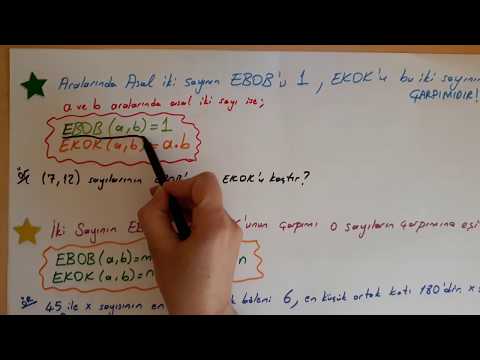 Aralarında Asal iki sayının EBOB'u 1, EKOK'u bu iki sayının
ÇARPIMIDIR!
a ve b aralarında asal iki sayı ise;
EBOB(a,b)=1
EKOK(a,b)=a.b
ÖR (7,12) sayılarının EKOK'u kaçtır?
İki Sayının çarpımı o sayıların çarpımına
EBOB(a,b)=m
EKOK(a,b)=n
ÖR 45 ile x sayısının en böleni 6, en küçük ortak katı 180'dir. x